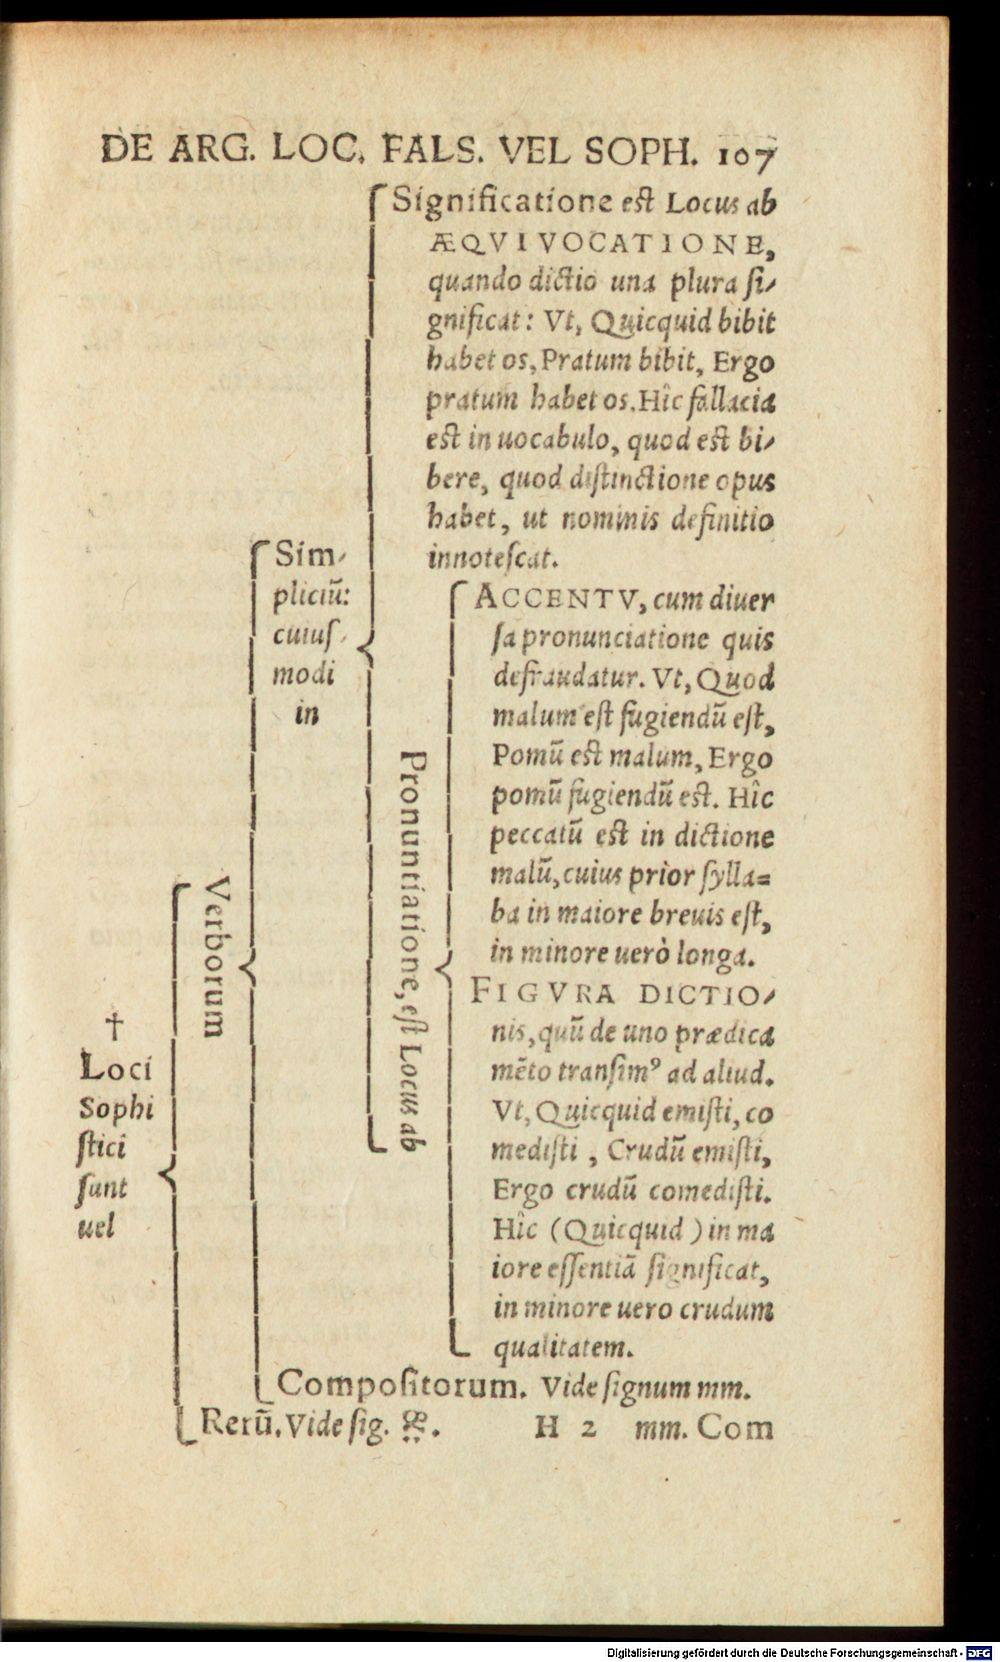 DE ARG. LOC. FALS. VEL SOPH. 107
†
Loci
Sophi
stici
sunt
uel
Verborum
Sim-
pliciū:
cuius-
modi
in
Significatione est Locus ab
ÆQVIVOCATIONE,
quando dictio una plura si-
gnificat: Vt, Quicquid bibit
habet os, Pratum bibit, Ergo
pratum habet os. Hîc fallacia
est in uocabulo, quod est bi-
bere, quod distinctione opus
habet, ut nominis definitio
innotescat.
Pronuntiatione, est Locus ab
ACCENTV, cum diuer
sa pronunciatione quis
defraudatur. Vt, Quod
malum est fugiendū est,
Pomū est malum, Ergo
pomū fugiendū est. Hîc
peccatū est in dictione
malū, cuius prior sylla=
ba in maiore breuis est,
in minore uerò longa.
FIGVRA DICTIO-
nis, quū de uno prædica
mēto transimꝰ ad aliud.
Vt, Quicquid emisti, co
medisti, Crudū emisti,
Ergo crudū comedisti.
Hîc (Quicquid) in ma
iore essentiā significat,
in minore uero crudum
qualitatem.
Compositorum. Vide signum mm.
Rerū. Vide sig. .
H 2 mm. Com
Digitalisierung gefördert durch die Deutsche Forschungsgemeinschaft - DFG